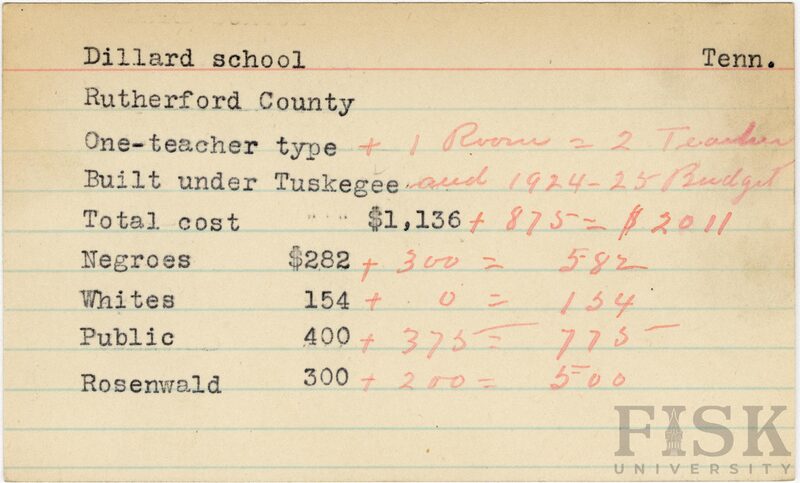 Dillard school Tenn.
Rutherford County
One-teacher type + 1 Room = 2 Teacher
Built under Tuskegee and 1924-25 Budget
Total cost $1,136 + 875 = $2011
Negroes $282 + 300 = 582
Whites 154 + 0 = 154
Public 400 + 375 = 775
Rosenwald 300 + 200 = 500
FISK
UNIVERSITY